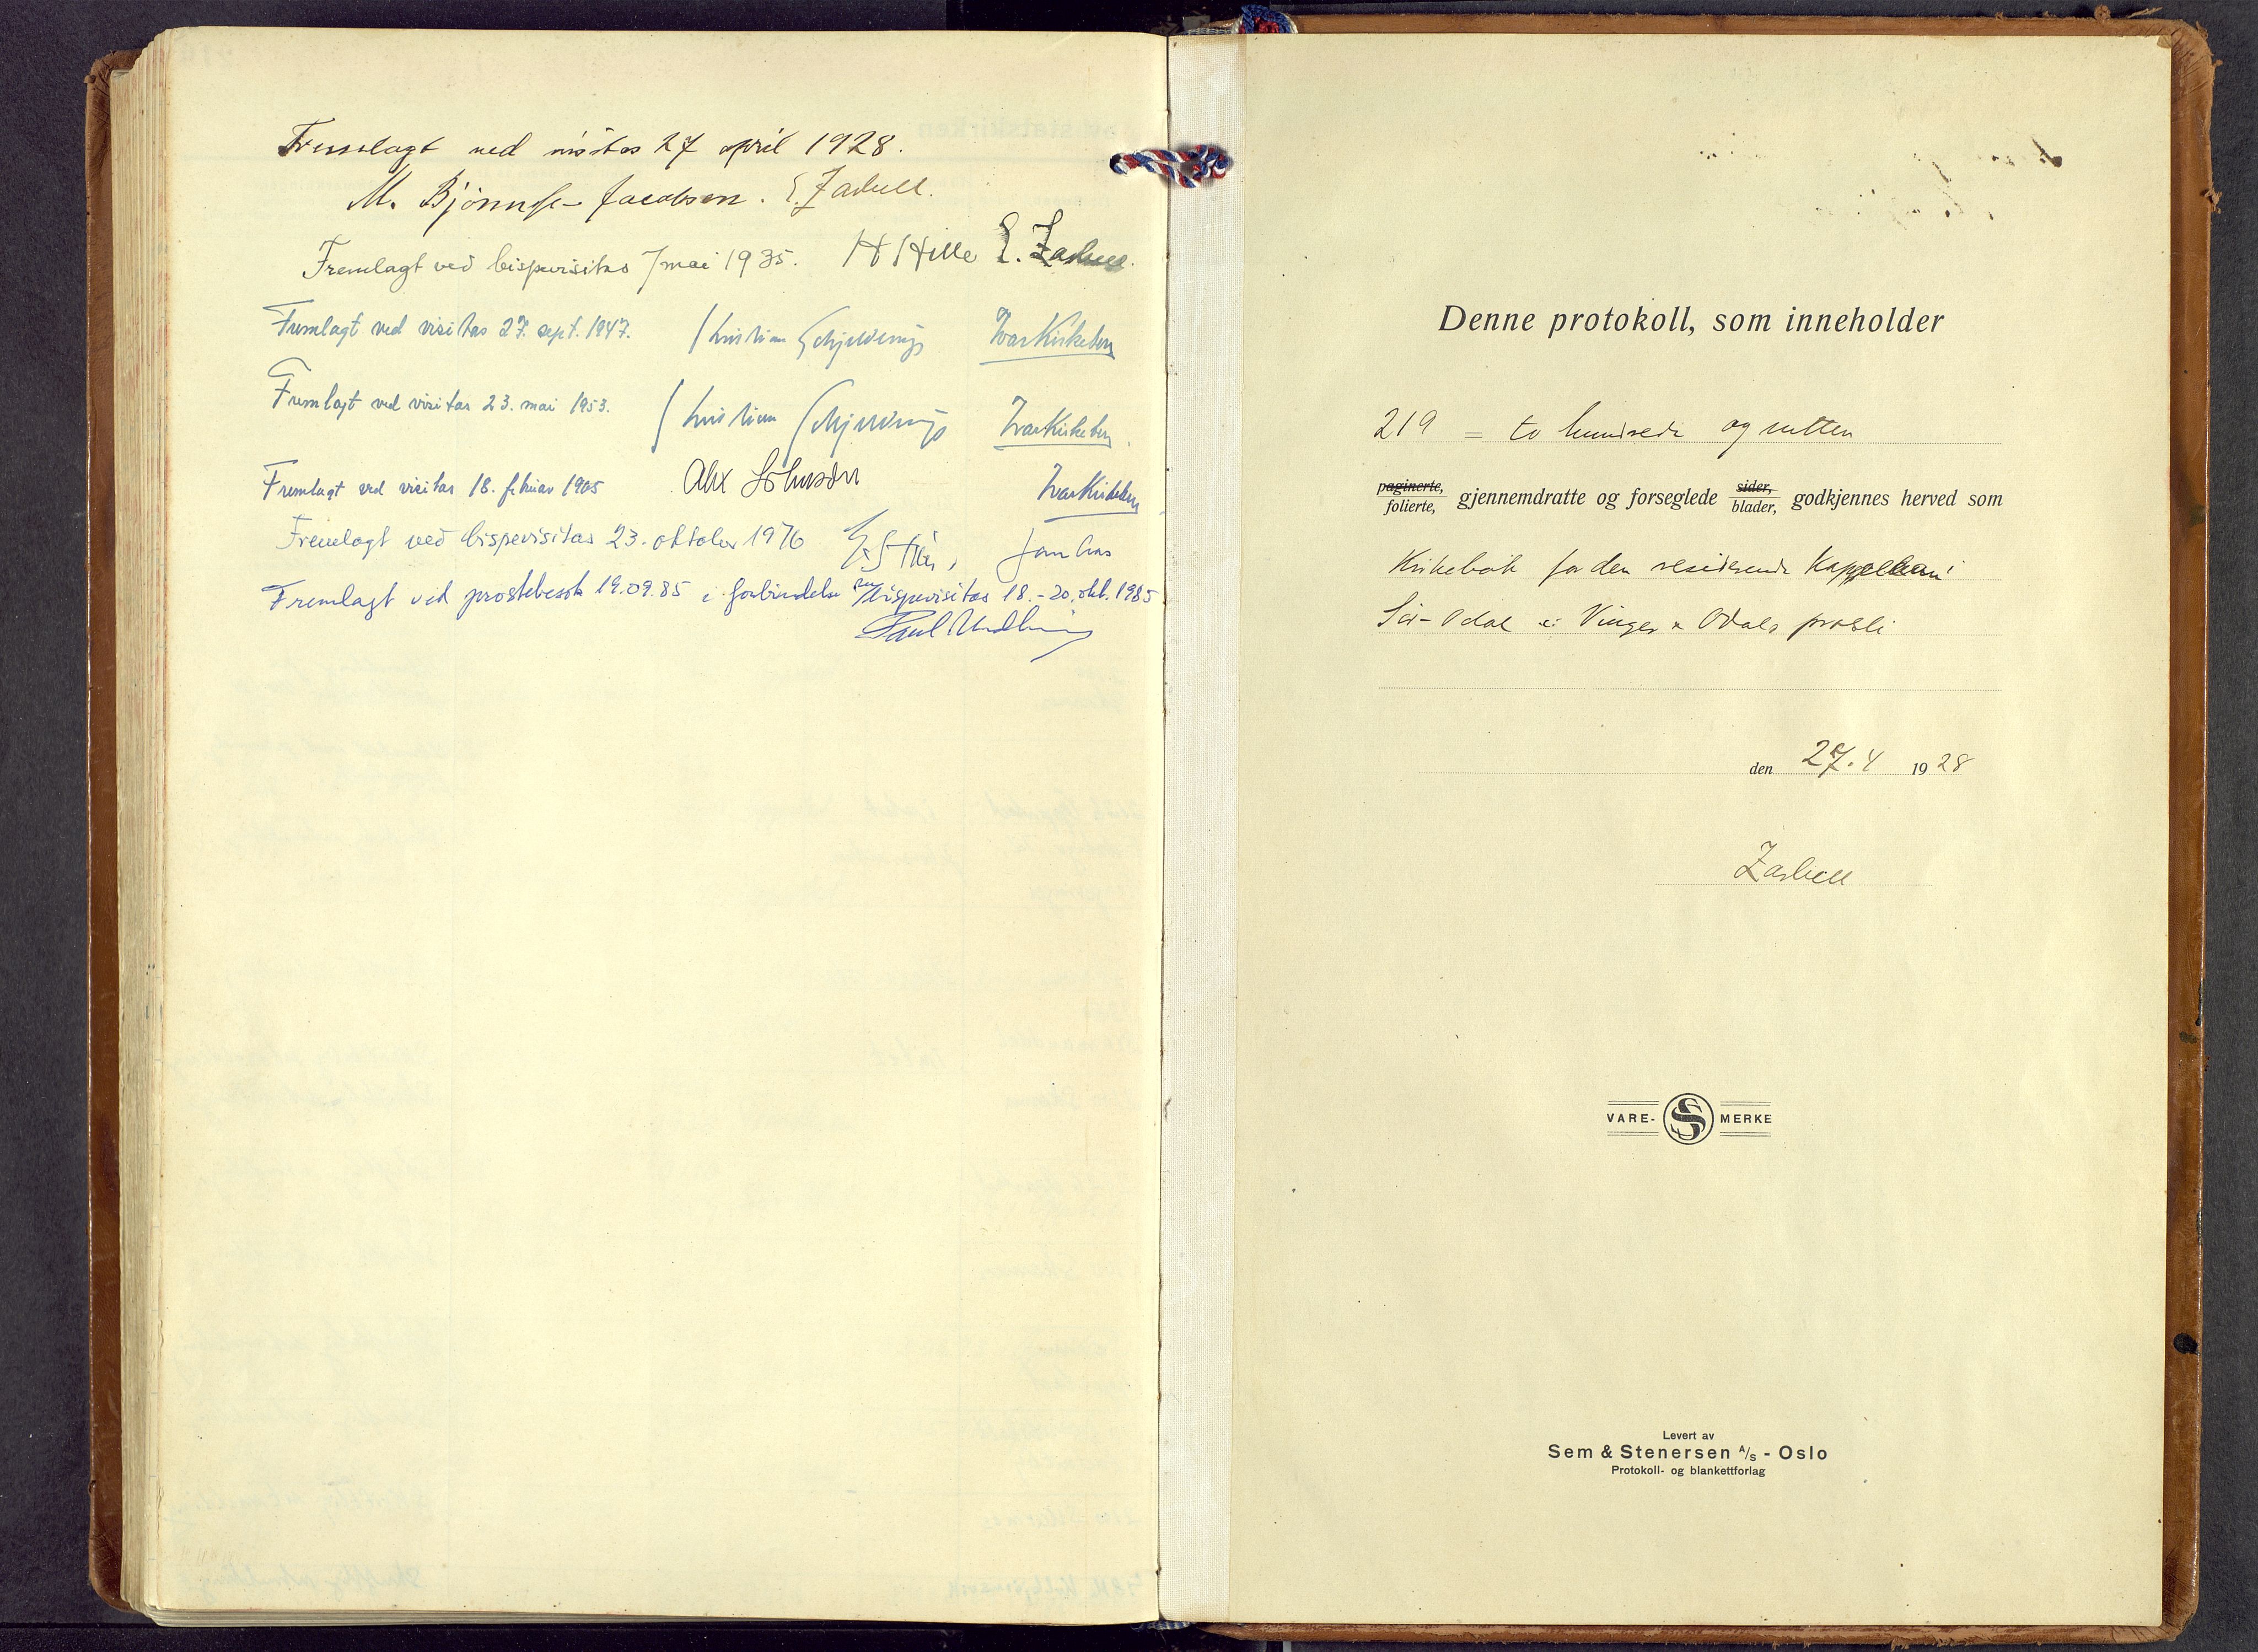 Fremlagt ved visitas 27 april 1928.
M. Bjönnes-Jacobsen. E. Zashell.
Fremlagt ved bispevisitas 7 mai 1935. H Hille E. Zashell.
Fremlagt ved visitas 27. sept. 1947. Kristian Schjelderup Ivar Kirkeberg
Fremlagt ved visitas 23. mai 1953. Kristian Schjelderup Ivar Kirkeberg
Fremlagt ved visitas 18. februar 1965 Alex Johnson Ivar Kirkeberg
Fremlagt ved bispevisitas 23. oktober 1976
Fremlagt ved prostebesök 19.09.85 i forbindelse m/bispevisitas 18.-20. okt. 1985
Denne protokoll, som inneholder
219 = to hundrede og nitten
paginerte, folierte, gjennemdratte og forseglede sider, blader, godkjennes herved som
Kirkebok for den residerende Kappellan i
Sör-Odal i Vinger & Odals prosti
den 27.4 1928
Zashell
VARE- S MERKE
Levert av
Sem & Stenersen A/S - Oslo
Protokoll- og blankettforlag